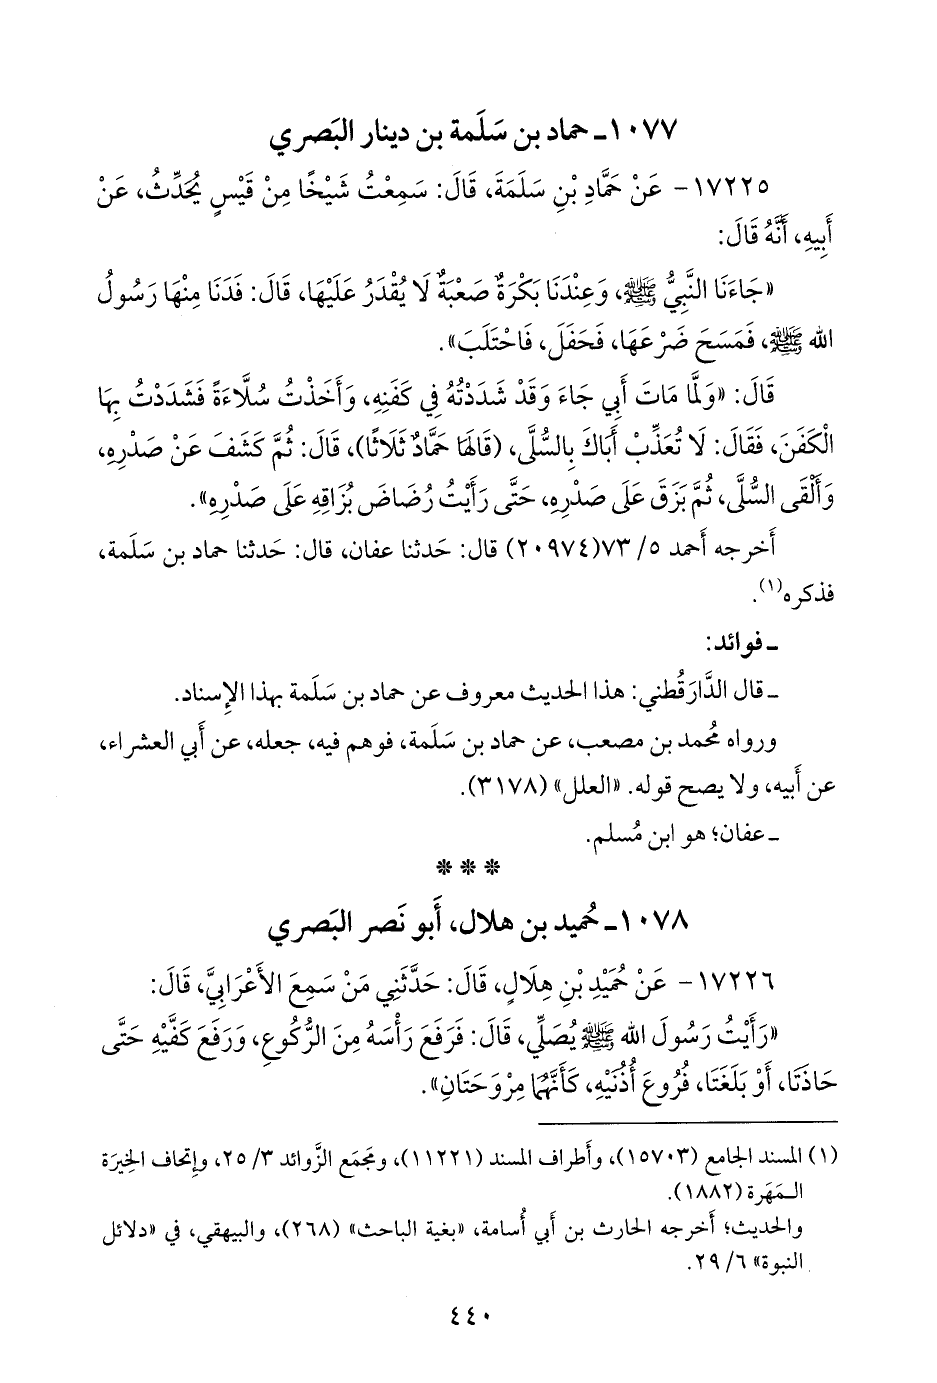 ١٠٧٧ـ حماد بن سَلَمة بن دينار البَصري
١٧٢٢٥- عَنْ حَمَّادِ بْنِ سَلَمَةَ، قَالَ: سَمِعْتُ شَيْخًا مِنْ قَيْسٍ يُحَدِّثُ، عَنْ
أَبِيهِ، أَنَّهُ قَالَ:
«جَاءَنَا النَّبِيُّ ﷺ، وَعِنْدَنَا بَكْرَةٌ صَعْبَةٌ لَا يُقْدَرُ عَلَيْهَا، قَالَ: فَدَنَا مِنْهَا رَسُولُ
الله ﷺ، فَمَسَحَ ضَرْعَهَا، فَحَفَلَ، فَاحْتَلَبَ».
قَالَ: «وَلَمَّا مَاتَ أَبِي جَاءَ وَقَدْ شَدَدْتُهُ فِي كَفَنِهِ، وَأَخَذْتُ سُلَّاءَةً فَشَدَدْتُ بِهَا
الْكَفَنَ، فَقَالَ: لَا تُعَذِّبْ أَبَاكَ بِالسُّلَّى، (قَالَهَا حَمَّادٌ ثَلَاثًا)، قَالَ: ثُمَّ كَشَفَ عَنْ صَدْرِهِ،
وَأَلْقَى السُّلَّى، ثُمَّ بَزَقَ عَلَى صَدْرِهِ، حَتَّى رَأَيْتُ رُضَاضَ بُزَاقِهِ عَلَى صَدْرِهِ».
أَخرجه أَحمد ٥/ ٧٣(٢٠٩٧٤) قال: حَدثنا عفان، قال: حَدثنا حماد بن سَلَمة،
فذكره(١).
ـ فوائد:
ـ قال الدَّارَقُطني: هذا الحديث معروف عن حماد بن سَلَمة بهذا الإِسناد.
ورواه مُحمد بن مصعب، عن حماد بن سَلَمة، فوهم فيه، جعله، عن أَبي العشراء،
عن أَبيه، ولا يصح قوله. «العلل» (٣١٧٨).
ـ عفان؛ هو ابن مُسلم.
* * *
١٠٧٨ـ حُميد بن هلال، أَبو نَصر البَصري
١٧٢٢٦- عَنْ حُمَيْدِ بْنِ هِلَالٍ، قَالَ: حَدَّثَنِي مَنْ سَمِعَ الأَعْرَابِيَّ، قَالَ:
«رَأَيْتُ رَسُولَ الله ﷺ يُصَلِّي، قَالَ: فَرَفَعَ رَأْسَهُ مِنَ الرُّكُوعِ، وَرَفَعَ كَفَّيْهِ حَتَّى
حَاذَتَا، أَوْ بَلَغَتَا، فُرُوعَ أُذُنَيْهِ، كَأَنَّهُمَا مِرْوَحَتَانِ».
(١) المسند الجامع (١٥٧٠٣)، وأَطراف المسند (١١٢٢١)، ومَجمَع الزَّوائد ٣/ ٢٥، وإِتحاف الخِيرَة
الـمَهَرة (١٨٨٢).
والحديث؛ أَخرجه الحارث بن أَبي أُسامة، «بغية الباحث» (٢٦٨)، والبيهقي، في «دلائل
النبوة» ٦/ ٢٩.
٤٤٠